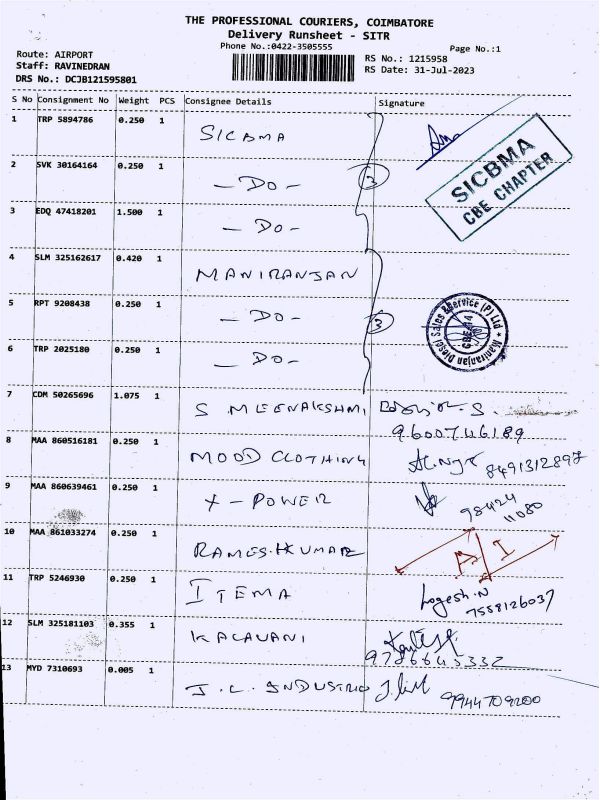 THE PROFESSIONAL COURIERS, COIMBATORE
Delivery Runsheet - SITR
Phone No.:0422-3505555
Page No.:1
Route: AIRPORT
Staff: RAVINEDRAN
DRS No.: DCJB121595801
RS No.: 1215958
RS Date: 31-Jul-2023
S No Consignment No Weight PCS Consignee Details Signature
1 TRP 5894786 0.250 1 SICBMA
SICBMA
CBE CHAPTER
2 SVK 30164164 0.250 1 - DO - 3
3 EDQ 47418201 1.500 1 - DO -
4 SLM 325162617 0.420 1 MANIRANJAN
5 RPT 9208438 0.250 1 - DO - 3
Maniranjan Diesel Sales & Service (P) Ltd
CBE-14
6 TRP 2025180 0.250 1 - DO -
7 CDM 50265696 1.075 1 S MEENAKSHMI
9600746189
8 MAA 860516181 0.250 1 MOOD CLOTHING 8491312897
9 MAA 860639461 0.250 1 X - POWER 98424
11080
10 MAA 861033274 0.250 1 RAMESHKUMAR A/I
11 TRP 5246930 0.250 1 ITEMA Logesh.N
7558126037
12 SLM 325181103 0.355 1 KALAVANI
9786645332
13 MYD 7310693 0.005 1 J.L. INDUSTRIO 9944709200